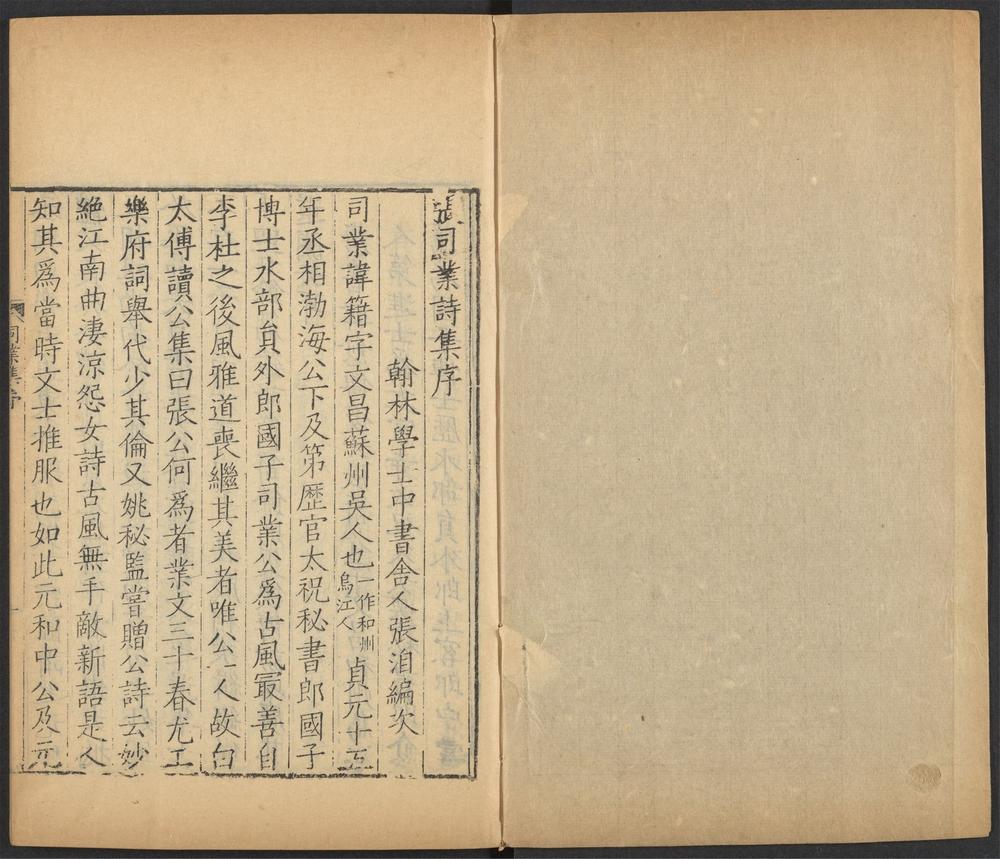 張司業詩集序
翰林學士中書舍人張洎編次
司業諱籍字文昌蘇州吳人也一作和州烏江人貞元十五
年丞相渤海公下及第歷官太祝秘書郎國子
博士水部貟外郎國子司業公爲古風冣善自
李杜之後風雅道喪繼其美者唯公一人故白
太傅讀公集曰張公何爲者業文三十春尤工
樂府詞舉代少其倫又姚秘監嘗贈公詩云妙
絶江南曲淒涼怨女詩古風無手敵新語是人
知其爲當時文士推服也如此元和中公及元
司業集序